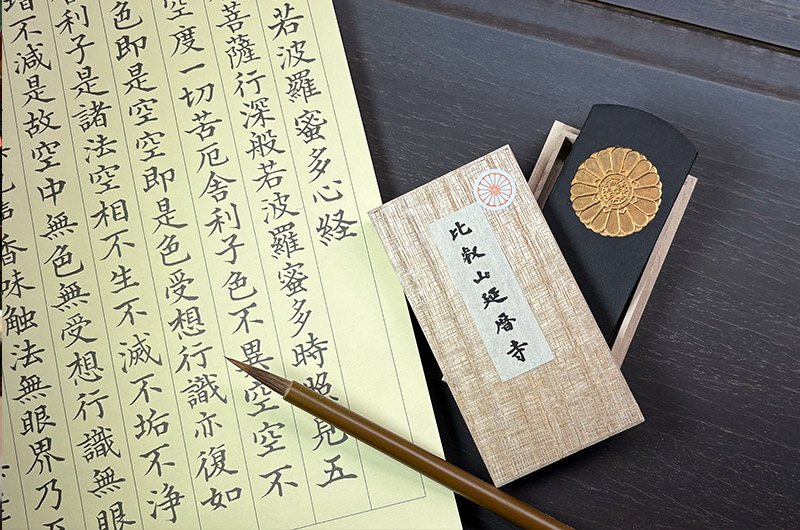 若波羅蜜多心経
菩薩行深般若波羅蜜多時照見五
空度一切苦厄舎利子色不異空空不
色即是空空即是色受想行識亦復如
利子是諸法空相不生不滅不垢不浄
不減是故空中無色無受想行識無眼
香味触法無眼界乃
比叡山延暦寺